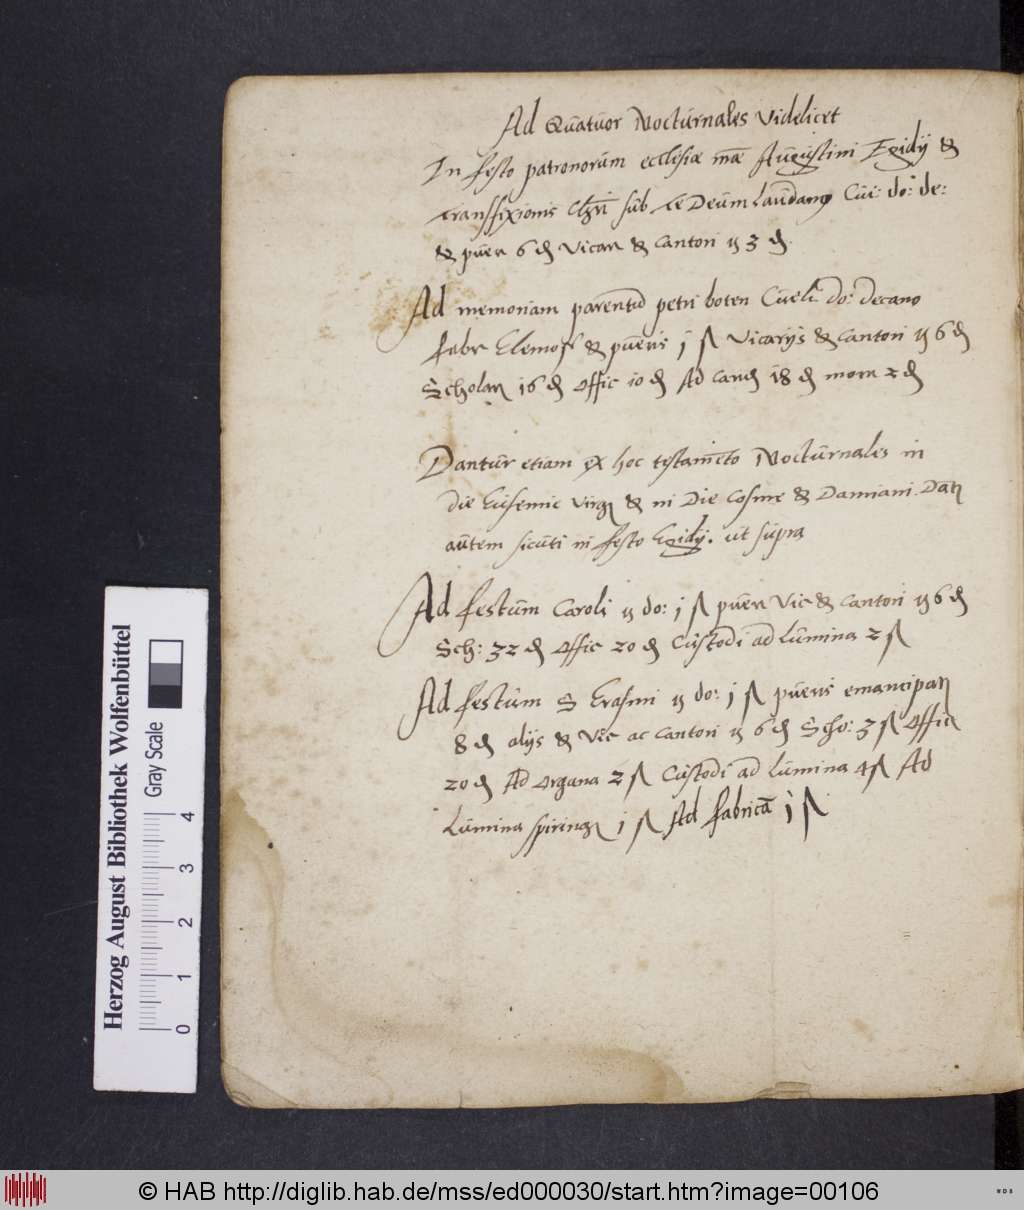 Ad Quatuor Nocturnales Videlicet
In festo patronorum ecclesiæ Augustini Egidij &
transfixionis sub te Deum Laudamus Cui: do: de:
& puer 6 ₰ Vicar & Cantori 3 ₰
Ad memoriam parentum petri boten Cuili do: decano
fabr Elemos & pueris j ß Vicarijs & Cantori 6 ₰
Scholar 16 ₰ Offic 10 ₰ Ad Cand 18 ₰ 2 ₰
Dantur etiam ex hoc testamento Nocturnales in
die Eufemie Virg & in Die Cosme & Damiani. Dant
autem sicuti in festo Egidij. ut supra
Ad festum Caroli do: j ß puer Vic & Cantori 6 ₰
Sch: 32 ₰ Offic 20 ₰ Custodi ad Lumina 2 ß
Ad festum S Erasmi do: j ß pueris emancipat
8 ₰ alijs & Vic ac Cantori 6 ₰ Scho: 3 ß Offic
20 ₰ Ad Organa 2 ß Custodi ad Lumina 4 ß Ad
Lumina j ß Ad fabricā j ß
Herzog August Bibliothek Wolfenbüttel
Gray Scale
0 1 2 3 4
© HAB http://diglib.hab.de/mss/ed000030/start.htm?image=00106